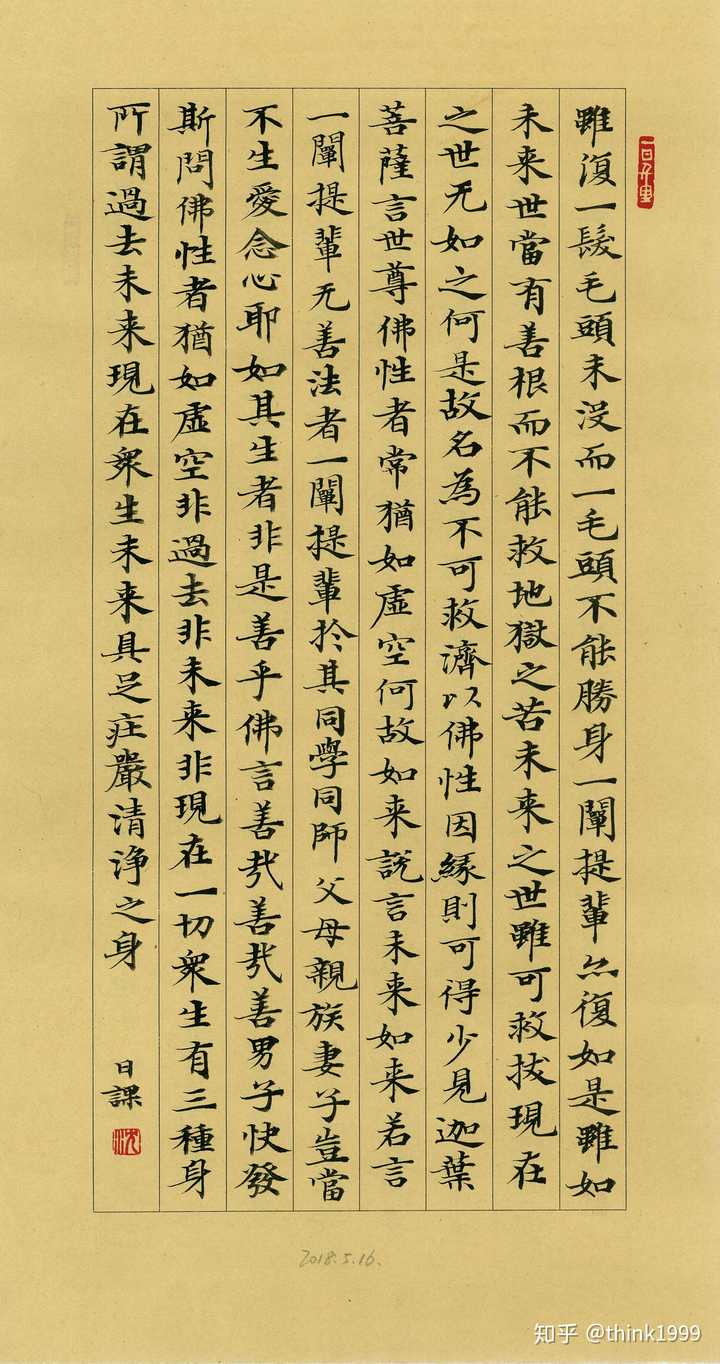 一日千里
雖復一髮毛頭未没而一毛頭不能勝身一闡提輩亦復如是雖如
未来世當有善根而不能救地獄之苦未来之世雖可救拔現在
之世无如之何是故名為不可救濟以佛性因縁則可得少見迦葉
菩薩言世尊佛性者常猶如虚空何故如来説言未来如来若言
一闡提輩无善法者一闡提輩扵其同學同師父母親族妻子豈當
不生愛念心耶如其生者非是善乎佛言善㢤善㢤善男子快發
斯問佛性者猶如虚空非過去非未来非現在一切衆生有三種身
所謂過去未来現在衆生未来具足庄嚴清浄之身
日課
沈
2018.5.16.
知乎 @think1999